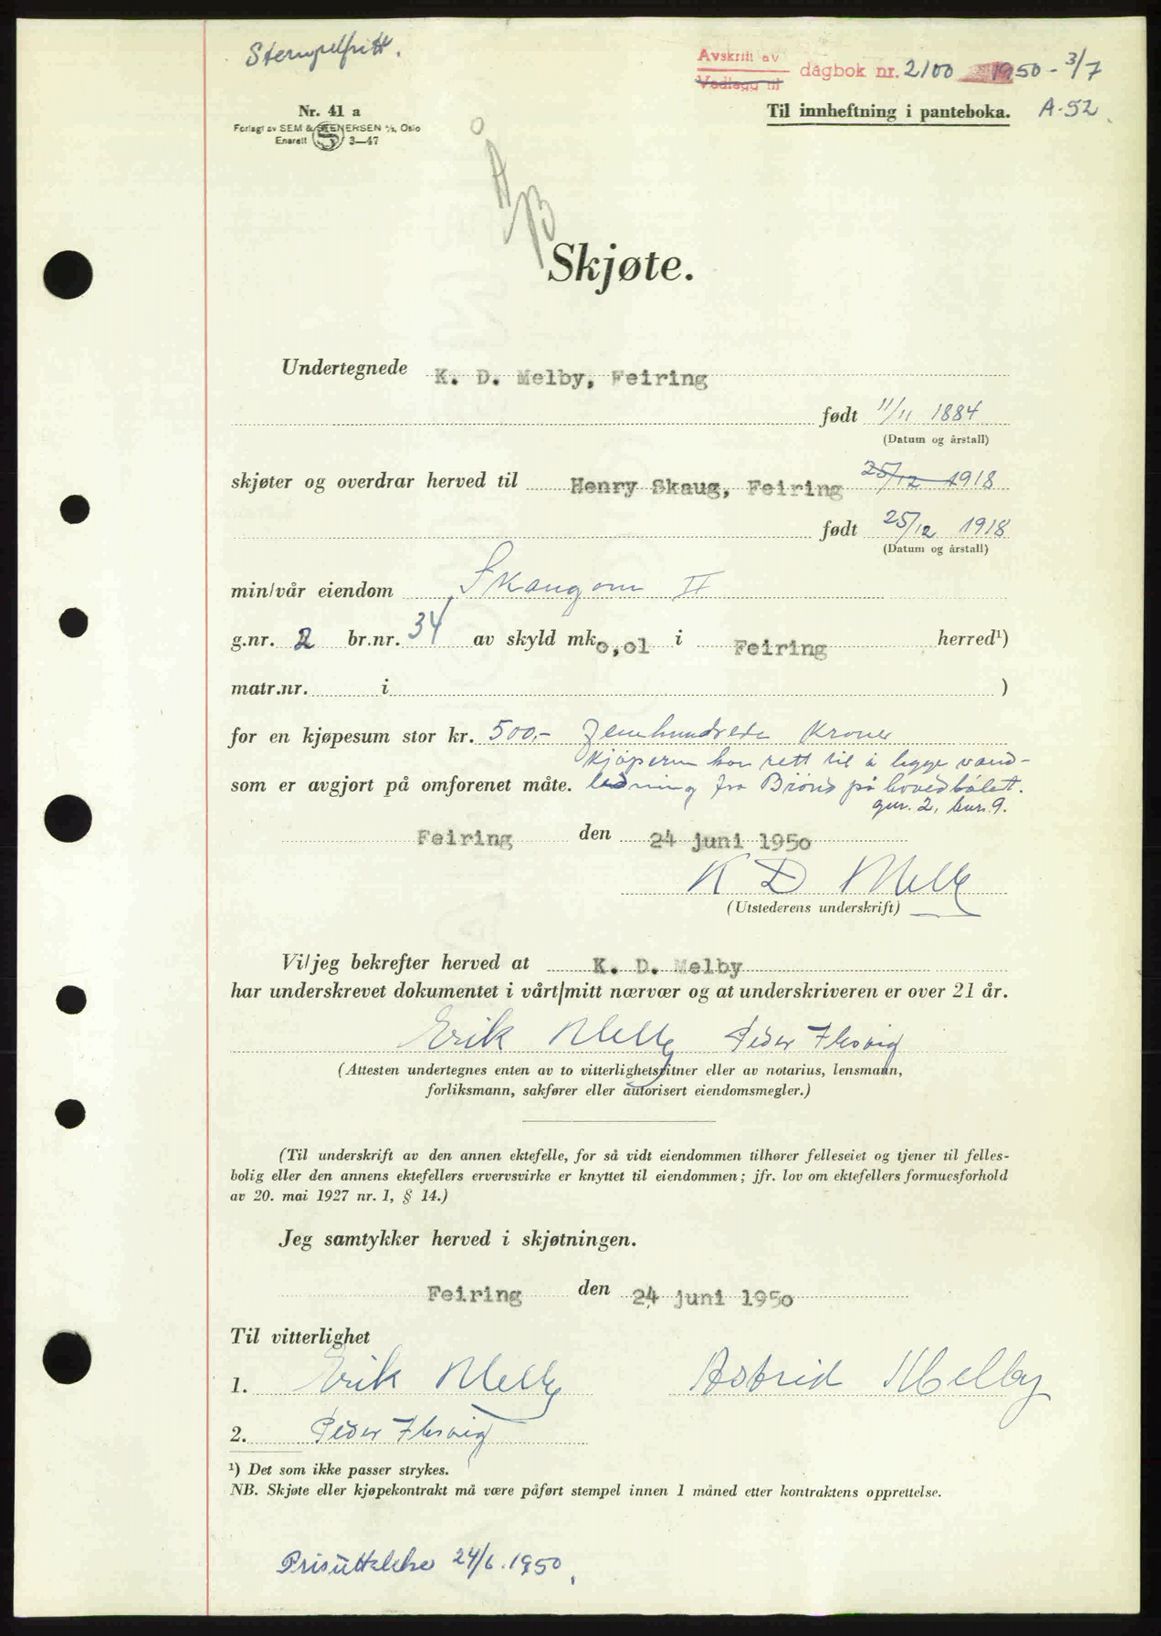 Stempelfritt.
Avskrift av
Vedlegg til
dagbok nr. 2100 1950 - 3/7
Til innheftning i panteboka. A-52
Nr. 41 a
Forlagt av SEM & STENERSEN A/S, Oslo
Enerett S 3—47
A/B
Skjøte.
Undertegnede K. D. Melby, Feiring
født 11/11 1884
(Datum og årstall)
skjøter og overdrar herved til Henry Skaug, Feiring 25/12 1918
født 25/12 1918
(Datum og årstall)
min/vår eiendom Skaugom II
g.nr. 2 br.nr. 34 av skyld mk. 0,01 i Feiring herred¹)
matr.nr. i )
for en kjøpesum stor kr. 500,- Femhundrede Kroner
Kjøperen har rett til å legge vand-
som er avgjort på omforenet måte. ledning fra Brönd på hovedbølet.
gnr. 2, bnr. 9.
Feiring den 24 juni 1950
K D Melby
(Utstederens underskrift)
Vi/jeg bekrefter herved at K. D. Melby
har underskrevet dokumentet i vårt/mitt nærvær og at underskriveren er over 21 år.
Erik Melby Peder
(Attesten undertegnes enten av to vitterlighetsvitner eller av notarius, lensmann,
forliksmann, sakfører eller autorisert eiendomsmegler.)
(Til underskrift av den annen ektefelle, for så vidt eiendommen tilhører felleseiet og tjener til felles-
bolig eller den annens ektefellers ervervsvirke er knyttet til eiendommen; jfr. lov om ektefellers formuesforhold
av 20. mai 1927 nr. 1, § 14.)
Jeg samtykker herved i skjøtningen.
Feiring den 24 juni 1950
Til vitterlighet
1. Erik Melby Astrid Melby
2. Peder
¹) Det som ikke passer strykes.
NB. Skjøte eller kjøpekontrakt må være påført stempel innen 1 måned etter kontraktens opprettelse.
Prisuttalelse 24/6.1950.